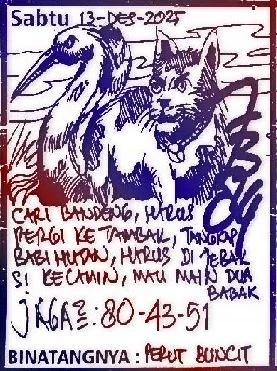 Sabtu 13-DES-2025
CARI BANDENG, HARUS
PERGI KE TAMBAK, TANGKAP
BABI HUTAN, HARUS DI JEBAK
SI KECAMIN, MAU MAIN DUA
BABAK
JAGA²: 80-43-51
BINATANGNYA : PERUT BUNCIT